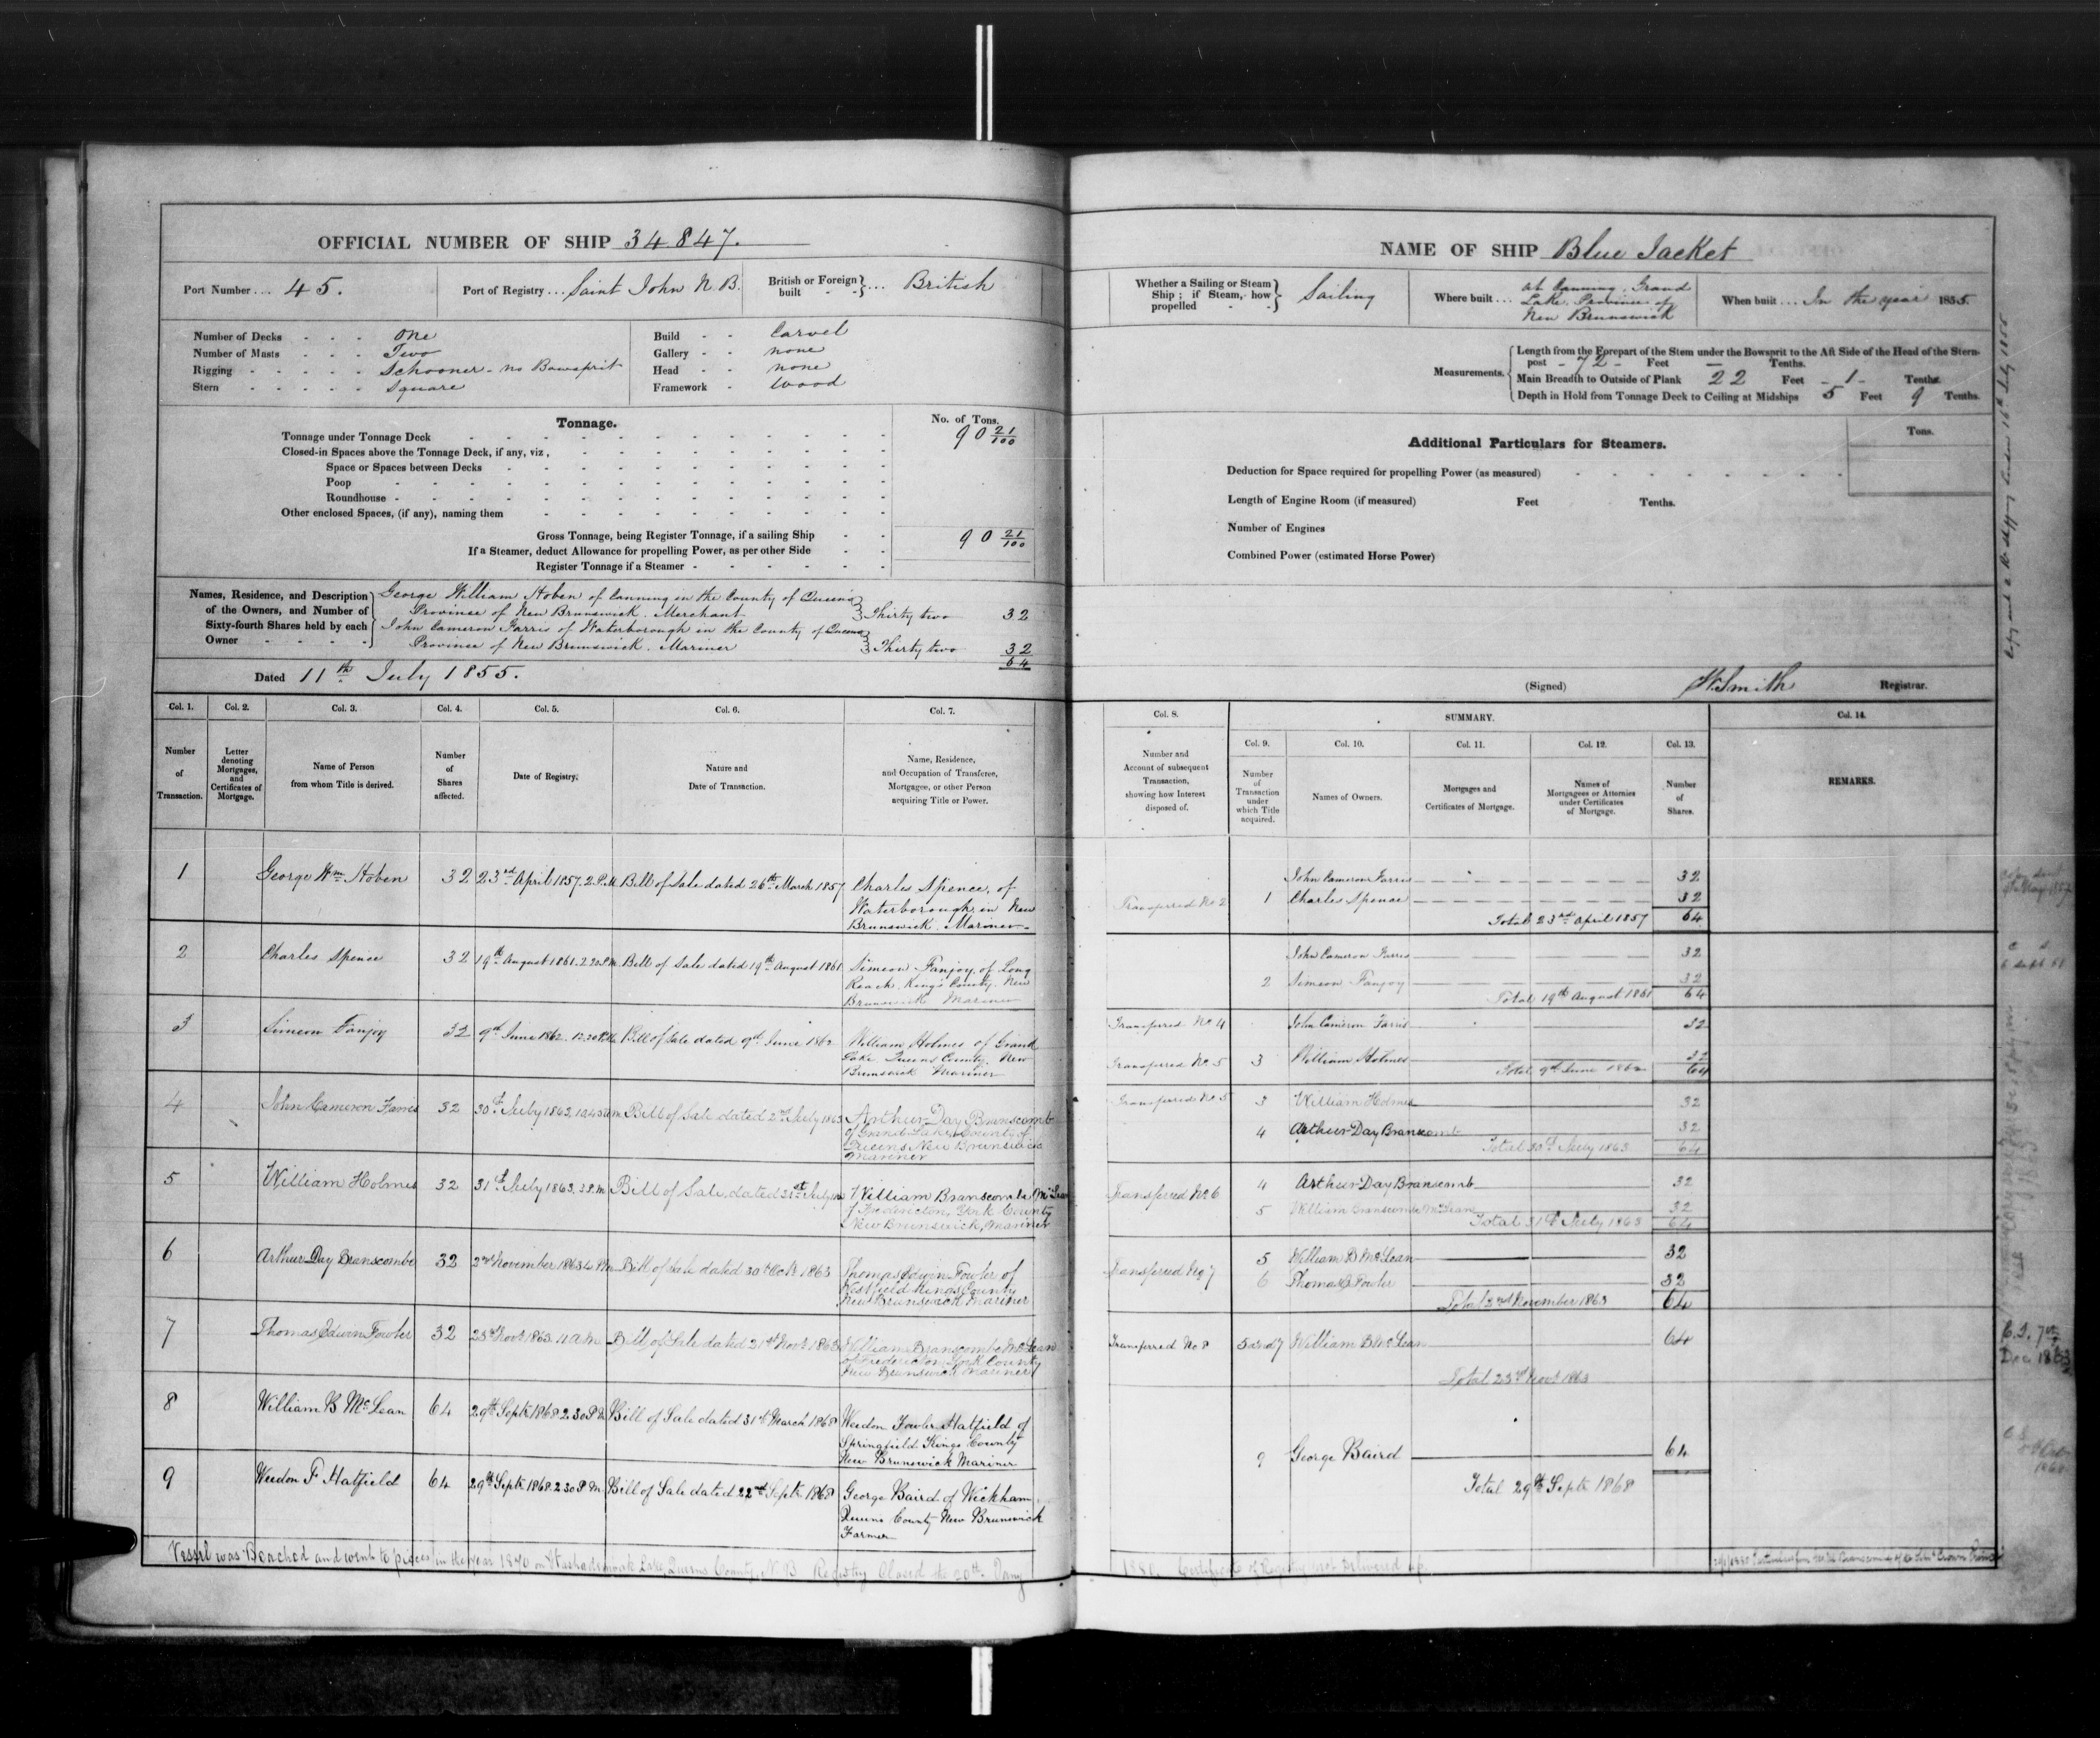 OFFICIAL NUMBER OF SHIP 34847.
Port Number .... 45.
Port of Registry ... Saint John N B.
British or Foreign built - - } ... British
Number of Decks - - - One
Number of Masts - - - Two
Rigging - - - - - Schooner - no Bowsprit
Stern - - - - - Square
Build - - Carvel
Gallery - - none
Head - - none
Framework - Wood
Tonnage.
No. of Tons.
Tonnage under Tonnage Deck 90 21/100
Closed-in Spaces above the Tonnage Deck, if any, viz,
Space or Spaces between Decks
Poop
Roundhouse
Other enclosed Spaces, (if any), naming them
Gross Tonnage, being Register Tonnage, if a sailing Ship 90 21/100
If a Steamer, deduct Allowance for propelling Power, as per other Side
Register Tonnage if a Steamer
Names, Residence, and Description of the Owners, and Number of Sixty-fourth Shares held by each Owner
George William Hoben of Canning in the County of Queens
Province of New Brunswick. Merchant } Thirty two 32
John Cameron Farris of Waterborough in the County of Queens
Province of New Brunswick. Mariner } Thirty two 32
64
Dated 11th July 1855.
Col. 1. Col. 2. Col. 3. Col. 4. Col. 5. Col. 6. Col. 7.
Number of Transaction.
Letter denoting Mortgages, and Certificates of Mortgage.
Name of Person from whom Title is derived.
Number of Shares affected.
Date of Registry.
Nature and Date of Transaction.
Name, Residence, and Occupation of Transferee, Mortgagee, or other Person acquiring Title or Power.
1 George Wm Hoben 32 23rd April 1857. 2 P.M. Bill of Sale dated 26th March 1857 Charles Spence, of
Waterborough in New
Brunswick. Mariner
2 Charles Spence 32 19th August 1861. 2.20 P.M. Bill of Sale dated 19th August 1861 Simeon Fanjoy, of Long
Reach, King's County. New
Brunswick Mariner
3 Simeon Fanjoy 32 9th June 1862. 12.30 P.M. Bill of Sale dated 9th June 1862 William Holmes of Grand
Lake Queens County. New
Brunswick Mariner
4 John Cameron Farris 32 30th July 1863. Bill of Sale dated 2nd July 1863 Arthur Day Branscomb
of Grand Lake, County of
Queens, New Brunswick
Mariner
5 William Holmes 32 31st July 1863. 3 P.M. Bill of Sale, dated 31st July William Branscombe McLean
of Fredericton, York County
New Brunswick, Mariner
6 Arthur Day Branscombe 32 2nd November 1863 4 P.M. Bill of Sale dated 30th Octr 1863 Thomas Edwin Fowler of
Westfield Kings County
New Brunswick Mariner
7 Thomas Edwin Fowler 32 23rd Novr 1863. 11 a.m. Bill of Sale dated 21st Novr 1863 William Branscombe McLean
of Fredericton York County
New Brunswick Mariner
8 William B McLean 64 29th Septr 1868 2.30 P.M. Bill of Sale dated 31st March 1868 Weedon Fowler Hatfield of
Springfield Kings County
New Brunswick Mariner
9 Weedon F Hatfield 64 29th Septr 1868. 2 30 P.M. Bill of Sale dated 22nd Septr 1868 George Baird of Wickham
Queens County New Brunswick
Farmer
Vessel was Beached and went to pieces in the year 1870 on Washademoak Lake, Queens County, N.B Registry Closed the 20th Jany
NAME OF SHIP Blue Jacket
Whether a Sailing or Steam Ship; if Steam, how propelled } Sailing
Where built ... at Canning, Grand
Lake, Province of
New Brunswick
When built .... In the year 1855.
Measurements.
Length from the Forepart of the Stem under the Bowsprit to the Aft Side of the Head of the Stern-
post - 72 - Feet - Tenths.
Main Breadth to Outside of Plank 22 Feet - 1 - Tenths.
Depth in Hold from Tonnage Deck to Ceiling at Midships 5 Feet 9 Tenths.
Additional Particulars for Steamers.
Tons.
Deduction for Space required for propelling Power (as measured)
Length of Engine Room (if measured) Feet Tenths.
Number of Engines
Combined Power (estimated Horse Power)
(Signed) W. Smith Registrar.
Col. 8. SUMMARY. Col. 14.
Col. 9. Col. 10. Col. 11. Col. 12. Col. 13.
Number and Account of subsequent Transaction, showing how Interest disposed of.
Number of Transaction under which Title acquired.
Names of Owners.
Mortgages and Certificates of Mortgage.
Names of Mortgagees or Attornies under Certificates of Mortgage.
Number of Shares.
REMARKS.
John Cameron Farris 32
Transferred No 2 1 Charles Spence 32
Total 23rd April 1857 64
John Cameron Farris 32
2 Simeon Fanjoy 32
Total 19th August 1861 64
Transferred No 4 John Cameron Farris 32
Transferred No. 5 3 William Holmes 32
Total 9th June 1862 64
Transferred No 5 3 William Holmes 32
4 Arthur Day Branscomb 32
Total 30th July 1863 64
Transferred No. 6 4 Arthur Day Branscomb 32
5 William Branscombe McLean 32
Total 31st July 1863 64
5 William B McLean 32
Transferred No 7 6 Thomas E Fowler 32
Total 2nd November 1863 64
Transferred No 8 5 and 7 William B McLean 64
Total 23rd Novr 1863
9 George Baird 64
Total 29th Septr 1868
1880. Certificate of Registry not Delivered up.
C.S. 7th
Dec 1863